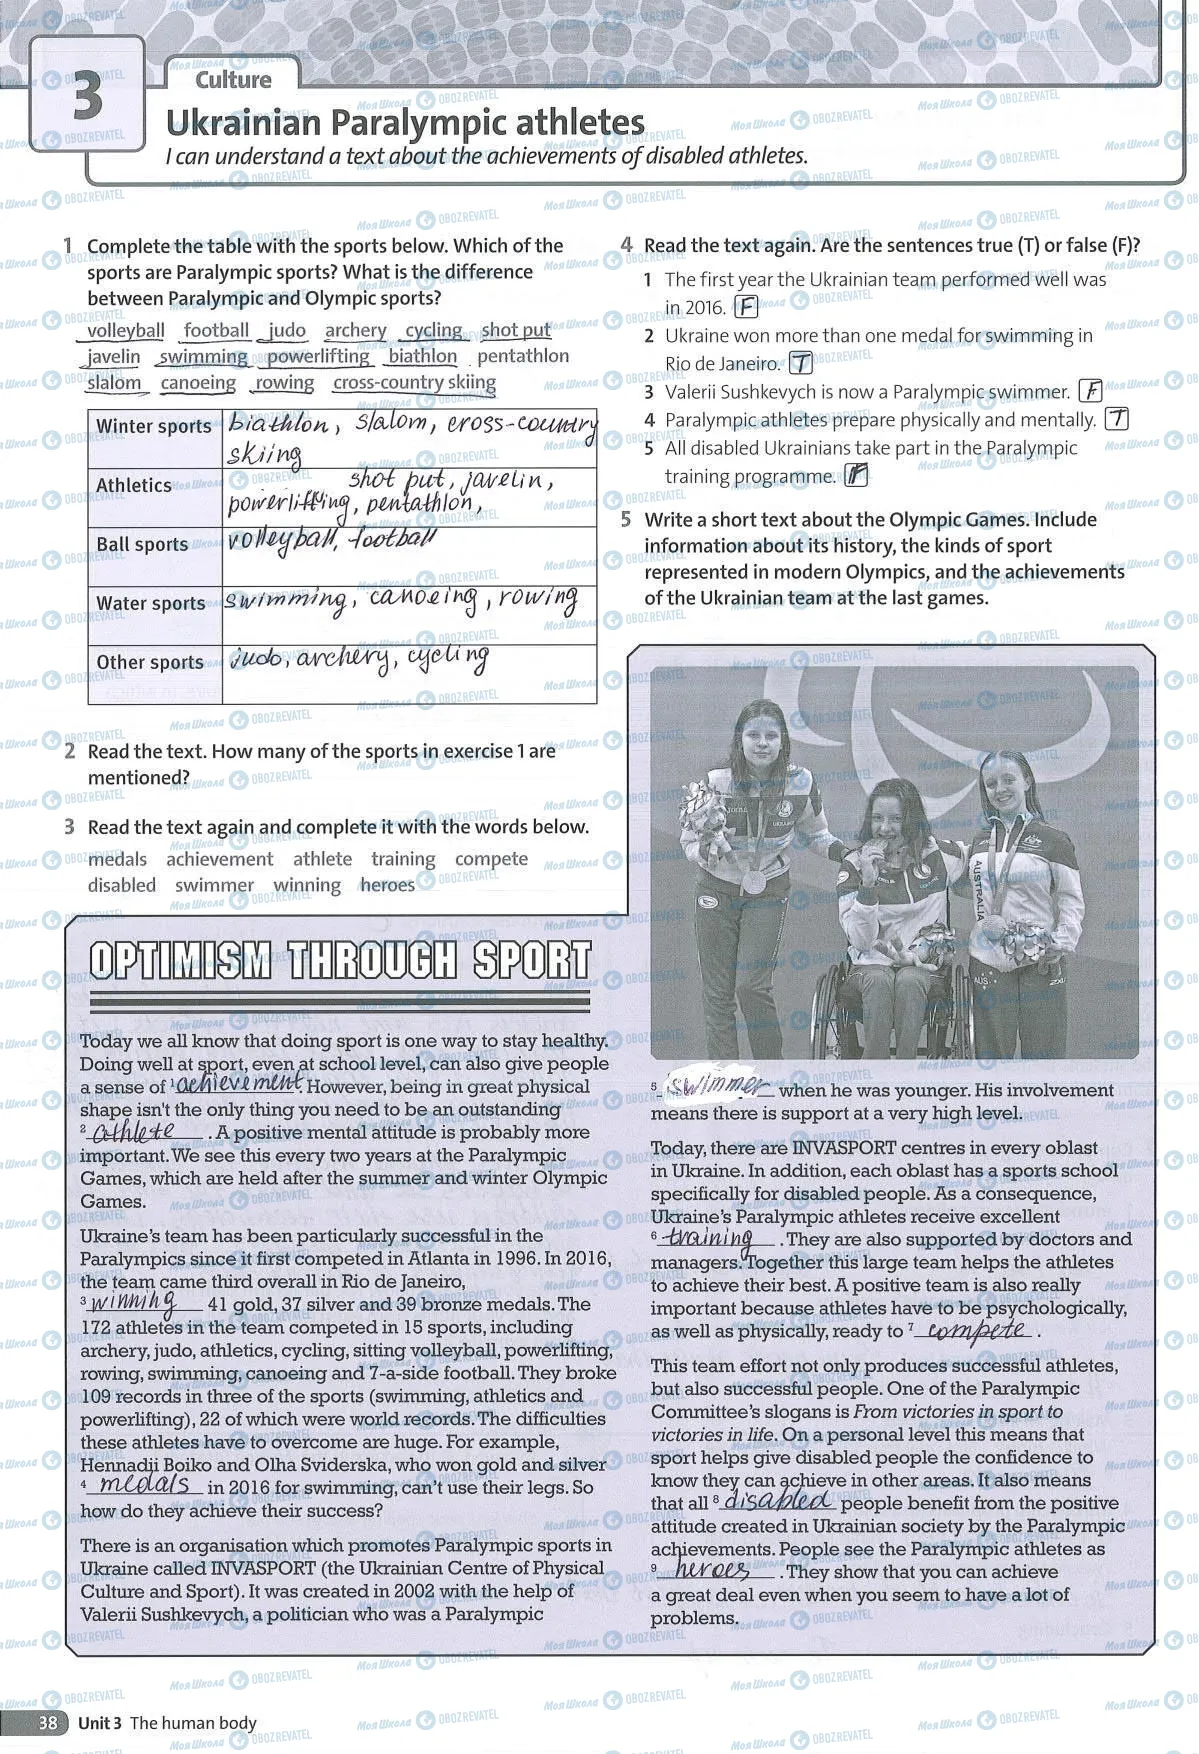 3
Culture
Ukrainian Paralympic athletes
I can understand a text about the achievements of disabled athletes.
1 Complete the table with the sports below. Which of the
sports are Paralympic sports? What is the difference
between Paralympic and Olympic sports?
volleyball football judo archery cycling shot put
javelin swimming powerlifting biathlon pentathlon
slalom canoeing rowing cross-country skiing
Winter sports biathlon, slalom, cross-country
skiing
Athletics shot put, javelin,
powerlifting, pentathlon,
Ball sports volleyball, football
Water sports swimming, canoeing, rowing
Other sports judo, archery, cycling
2 Read the text. How many of the sports in exercise 1 are
mentioned?
3 Read the text again and complete it with the words below.
medals achievement athlete training compete
disabled swimmer winning heroes
4 Read the text again. Are the sentences true (T) or false (F)?
1 The first year the Ukrainian team performed well was
in 2016. F
2 Ukraine won more than one medal for swimming in
Rio de Janeiro. T
3 Valerii Sushkevych is now a Paralympic swimmer. F
4 Paralympic athletes prepare physically and mentally. T
5 All disabled Ukrainians take part in the Paralympic
training programme.
5 Write a short text about the Olympic Games. Include
information about its history, the kinds of sport
represented in modern Olympics, and the achievements
of the Ukrainian team at the last games.
OPTIMISM THROUGH SPORT
Today we all know that doing sport is one way to stay healthy.
Doing well at sport, even at school level, can also give people
a sense of 1 achievement However, being in great physical
shape isn't the only thing you need to be an outstanding
2 athlete . A positive mental attitude is probably more
important. We see this every two years at the Paralympic
Games, which are held after the summer and winter Olympic
Games.
Ukraine's team has been particularly successful in the
Paralympics since it first competed in Atlanta in 1996. In 2016,
the team came third overall in Rio de Janeiro,
3 winning 41 gold, 37 silver and 39 bronze medals. The
172 athletes in the team competed in 15 sports, including
archery, judo, athletics, cycling, sitting volleyball, powerlifting,
rowing, swimming, canoeing and 7-a-side football. They broke
109 records in three of the sports (swimming, athletics and
powerlifting), 22 of which were world records. The difficulties
these athletes have to overcome are huge. For example,
Hennadii Boiko and Olha Sviderska, who won gold and silver
4 medals in 2016 for swimming, can't use their legs. So
how do they achieve their success?
There is an organisation which promotes Paralympic sports in
Ukraine called INVASPORT (the Ukrainian Centre of Physical
Culture and Sport). It was created in 2002 with the help of
Valerii Sushkevych, a politician who was a Paralympic
AUSTRALIA
AUS
5 swimmer when he was younger. His involvement
means there is support at a very high level.
Today, there are INVASPORT centres in every oblast
in Ukraine. In addition, each oblast has a sports school
specifically for disabled people. As a consequence,
Ukraine's Paralympic athletes receive excellent
6 training . They are also supported by doctors and
managers. Together this large team helps the athletes
to achieve their best. A positive team is also really
important because athletes have to be psychologically,
as well as physically, ready to 7 compete .
This team effort not only produces successful athletes,
but also successful people. One of the Paralympic
Committee's slogans is From victories in sport to
victories in life. On a personal level this means that
sport helps give disabled people the confidence to
know they can achieve in other areas. It also means
that all 8 disabled people benefit from the positive
attitude created in Ukrainian society by the Paralympic
achievements. People see the Paralympic athletes as
9 heroes . They show that you can achieve
a great deal even when you seem to have a lot of
problems.
38 Unit 3 The human body
Моя Школа OBOZREVATEL